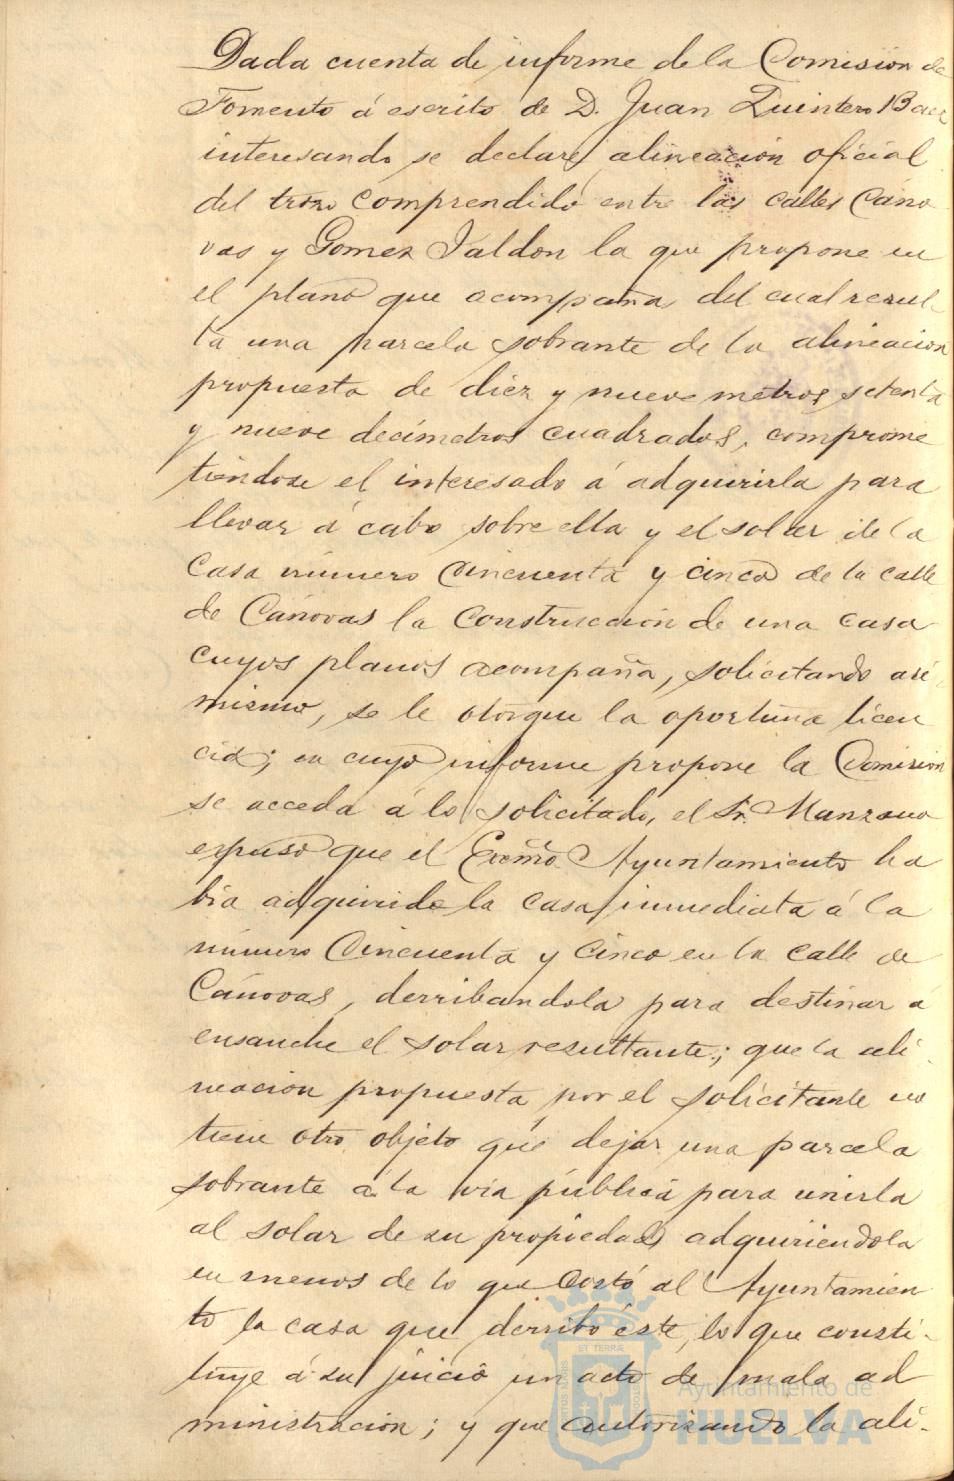 Dada cuenta de informe de la Comision de
Fomento á escrito de D. Juan Quintero Baez
interesando se declare alineación oficial
del trozo comprendido entre las calles Cáno
vas y Gomez Jaldon la que propone en
el plano que acompaña del cual resul-
ta una parcela sobrante de la alineacion
propuesta de diez y nueve metros setenta
y nueve decímetros cuadrados, comprome
tiéndose el interesado á adquirirla para
llevar á cabo sobre ella y el solar de la
casa número cincuenta y cinco de la calle
de Cánovas la construcción de una casa
cuyos planos acompaña, solicitando asi-
mismo, se le otorgue la oportuna licen
cia; en cuyo informe propone la Comision
se acceda á lo solicitado, el Sr. Manzano
espuso que el Excmo. Ayuntamiento ha
bia adquirido la casa inmediata á la
número cincuenta y cinco en la calle de
Cánovas, derribandola para destinar á
ensanche el solar resultante; que la ali-
neacion propuesta por el solicitante no
tiene otro objeto que dejar una parcela
sobrante á la via pública para unirla
al solar de su propiedad adquiriendola
en menos de lo que costó al Ayuntamien
to la casa que derribó éste, lo que consti-
tuye á su juicio un acto de mala ad
ministracion; y que autorizando la ali-
ET TERRÆ
Ayuntamiento de
HUELVA